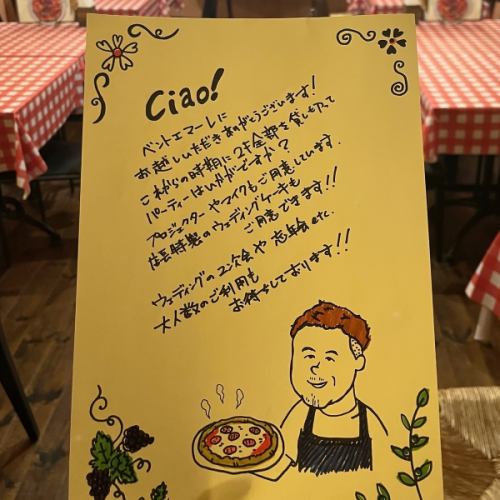 Ciao!
ベントエマーレに
お越しいただきありがとうございます!
これからの時期に2F全部を貸し切って
パーティーはいかがですか?
プロジェクターやマイクもご用意しています.
店長特製のウェディングケーキも
ご用意できます!!
ウェディングの2次会や忘年会etc.
大人数のご利用も
お待ちしております!!